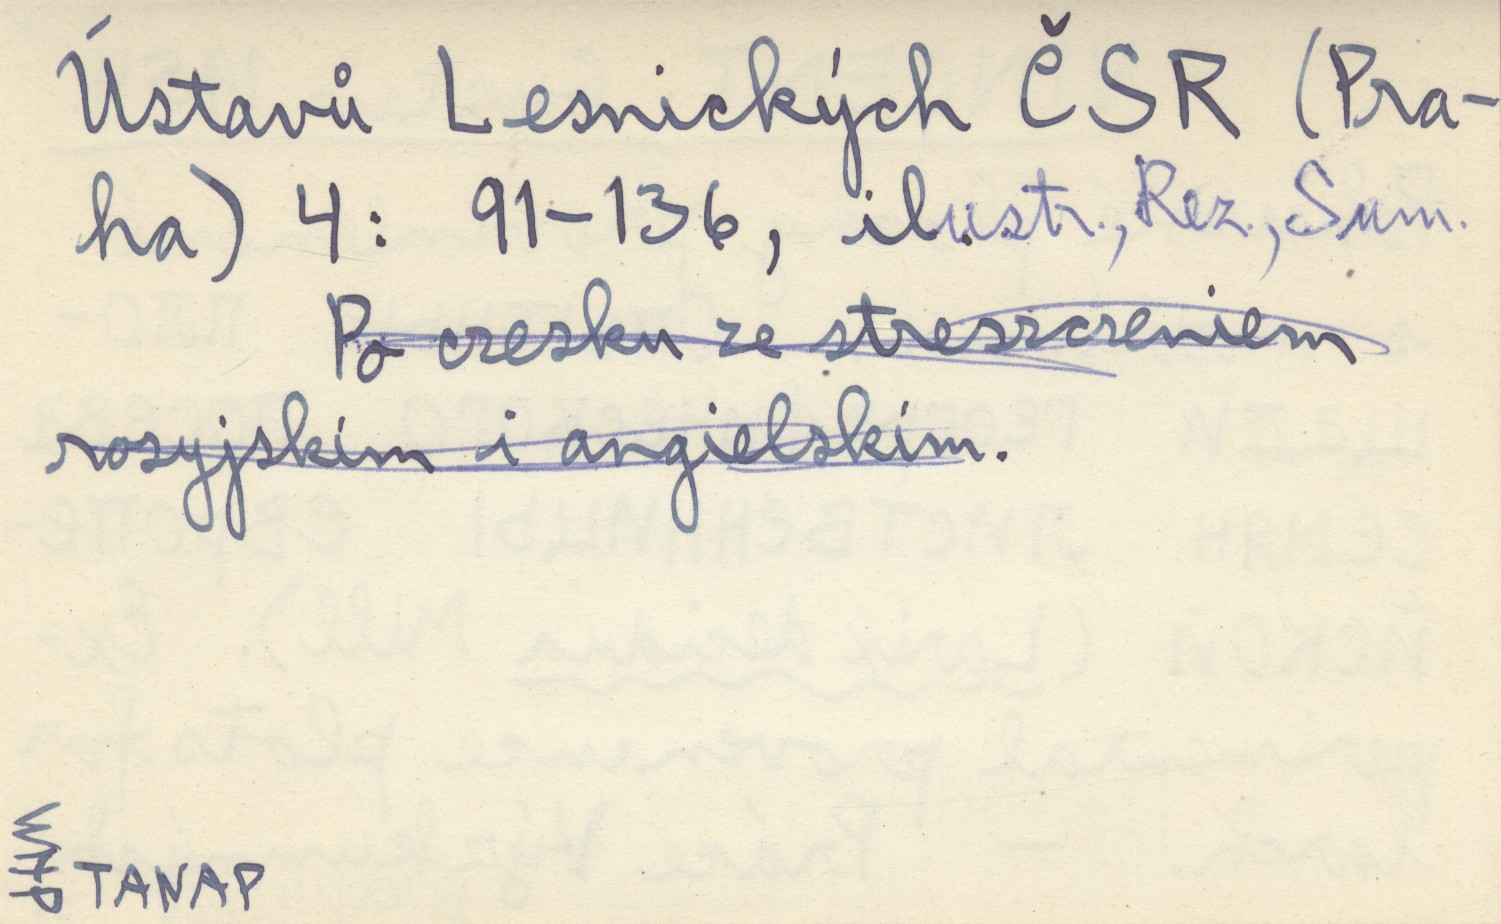 Ústavů Lesnických ČSR (Pra-
ha) 4: 91-136, ilustr., Rez., Sum.
Po czesku ze streszczeniem
rosyjskim i angielskim.
TANAP